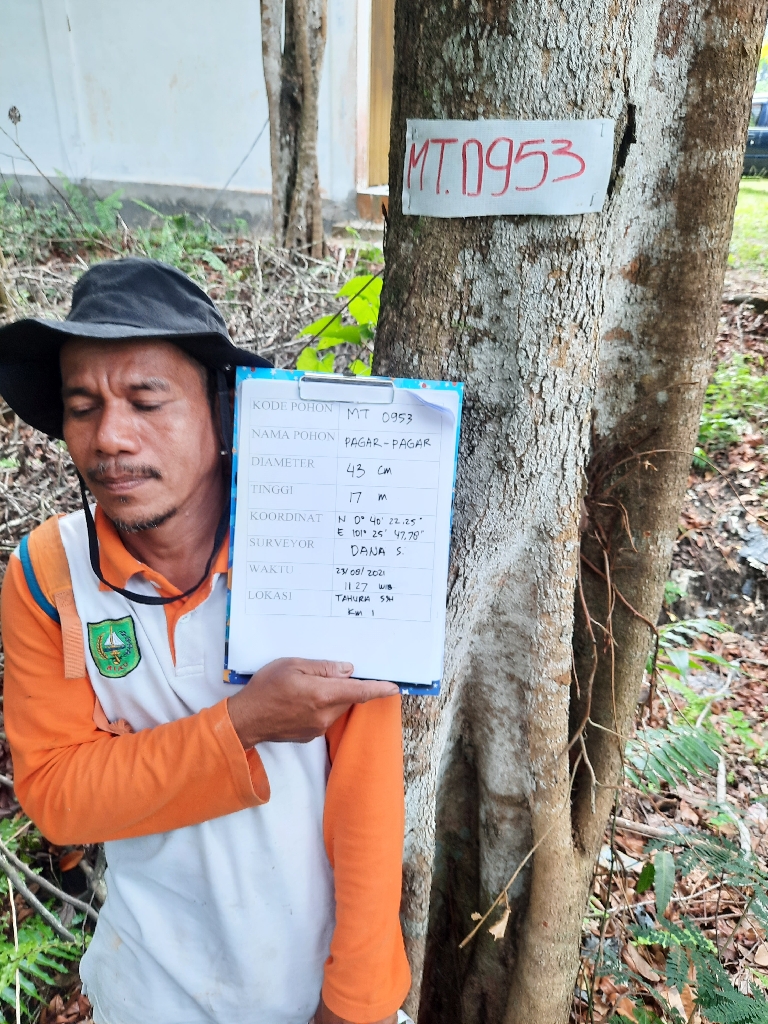 MT.D953
KODE POHON MT D953
NAMA POHON PAGAR-PAGAR
DIAMETER 43 cm
TINGGI 17 m
KOORDINAT N 0° 40' 22.25"
E 101° 25' 47,78"
SURVEYOR DANA S.
WAKTU 23/08/2021
11.27 WIB
LOKASI TAHURA SSH
Km 1